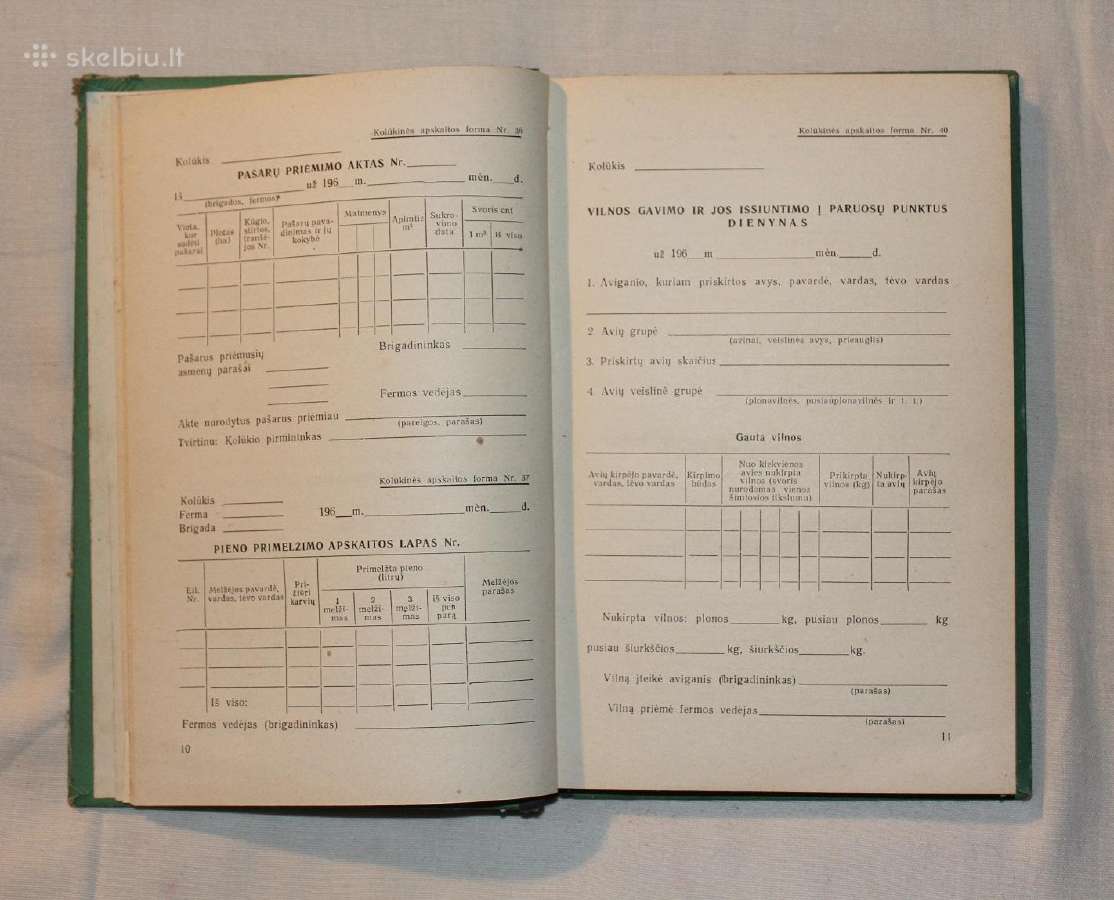 skelbiu.lt
Kolūkinės apskaitos forma Nr. 36
Kolūkis
PAŠARŲ PRIĖMIMO AKTAS Nr.
už 196 m. mėn. d.
Iš
(brigados, fermos)
Vieta, kur sudėti pašarai
Plotas (ha)
Kūgio, stirtos, tranšėjos Nr.
Pašarų pavadinimas ir jų kokybė
Matmenys
Apimtis m³
Sukrovimo data
Svoris cnt
1 m³
iš viso
Pašarus priėmusių
asmenų parašai
Brigadininkas
Fermos vedėjas
Akte nurodytus pašarus priėmiau
(pareigos, parašas)
Tvirtinu: Kolūkio pirmininkas
Kolūkinės apskaitos forma Nr. 37
Kolūkis
Ferma
Brigada
196 m. mėn. d.
PIENO PRIMELŽIMO APSKAITOS LAPAS Nr.
Eil. Nr.
Melžėjos pavardė, vardas, tėvo vardas
Prižiūri karvių
Primelžta pieno (litrų)
1 melžimas
2 melžimas
3 melžimas
iš viso per parą
Melžėjos parašas
Iš viso:
Fermos vedėjas (brigadininkas)
10
Kolūkinės apskaitos forma Nr. 40
Kolūkis
VILNOS GAVIMO IR JOS IŠSIUNTIMO Į PARUOŠŲ PUNKTUS
DIENYNAS
už 196 m mėn. d.
1. Aviganio, kuriam priskirtos avys, pavardė, vardas, tėvo vardas
2. Avių grupė
(avinai, veislinės avys, prieauglis)
3. Priskirtų avių skaičius
4. Avių veislinė grupė
(plonavilnės, pusiauplonavilnės ir t. t.)
Gauta vilnos
Avių kirpėjo pavardė, vardas, tėvo vardas
Kirpimo būdas
Nuo kiekvienos avies nukirpta vilnos (svoris nurodomas vienos šimtosios tikslumu)
Prikirpta vilnos (kg)
Nukirpta avių
Avių kirpėjo parašas
Nukirpta vilnos: plonos kg, pusiau plonos kg
pusiau šiurkščios kg, šiurkščios kg.
Vilną įteikė aviganis (brigadininkas)
(parašas)
Vilną priėmė fermos vedėjas
(parašas)
11